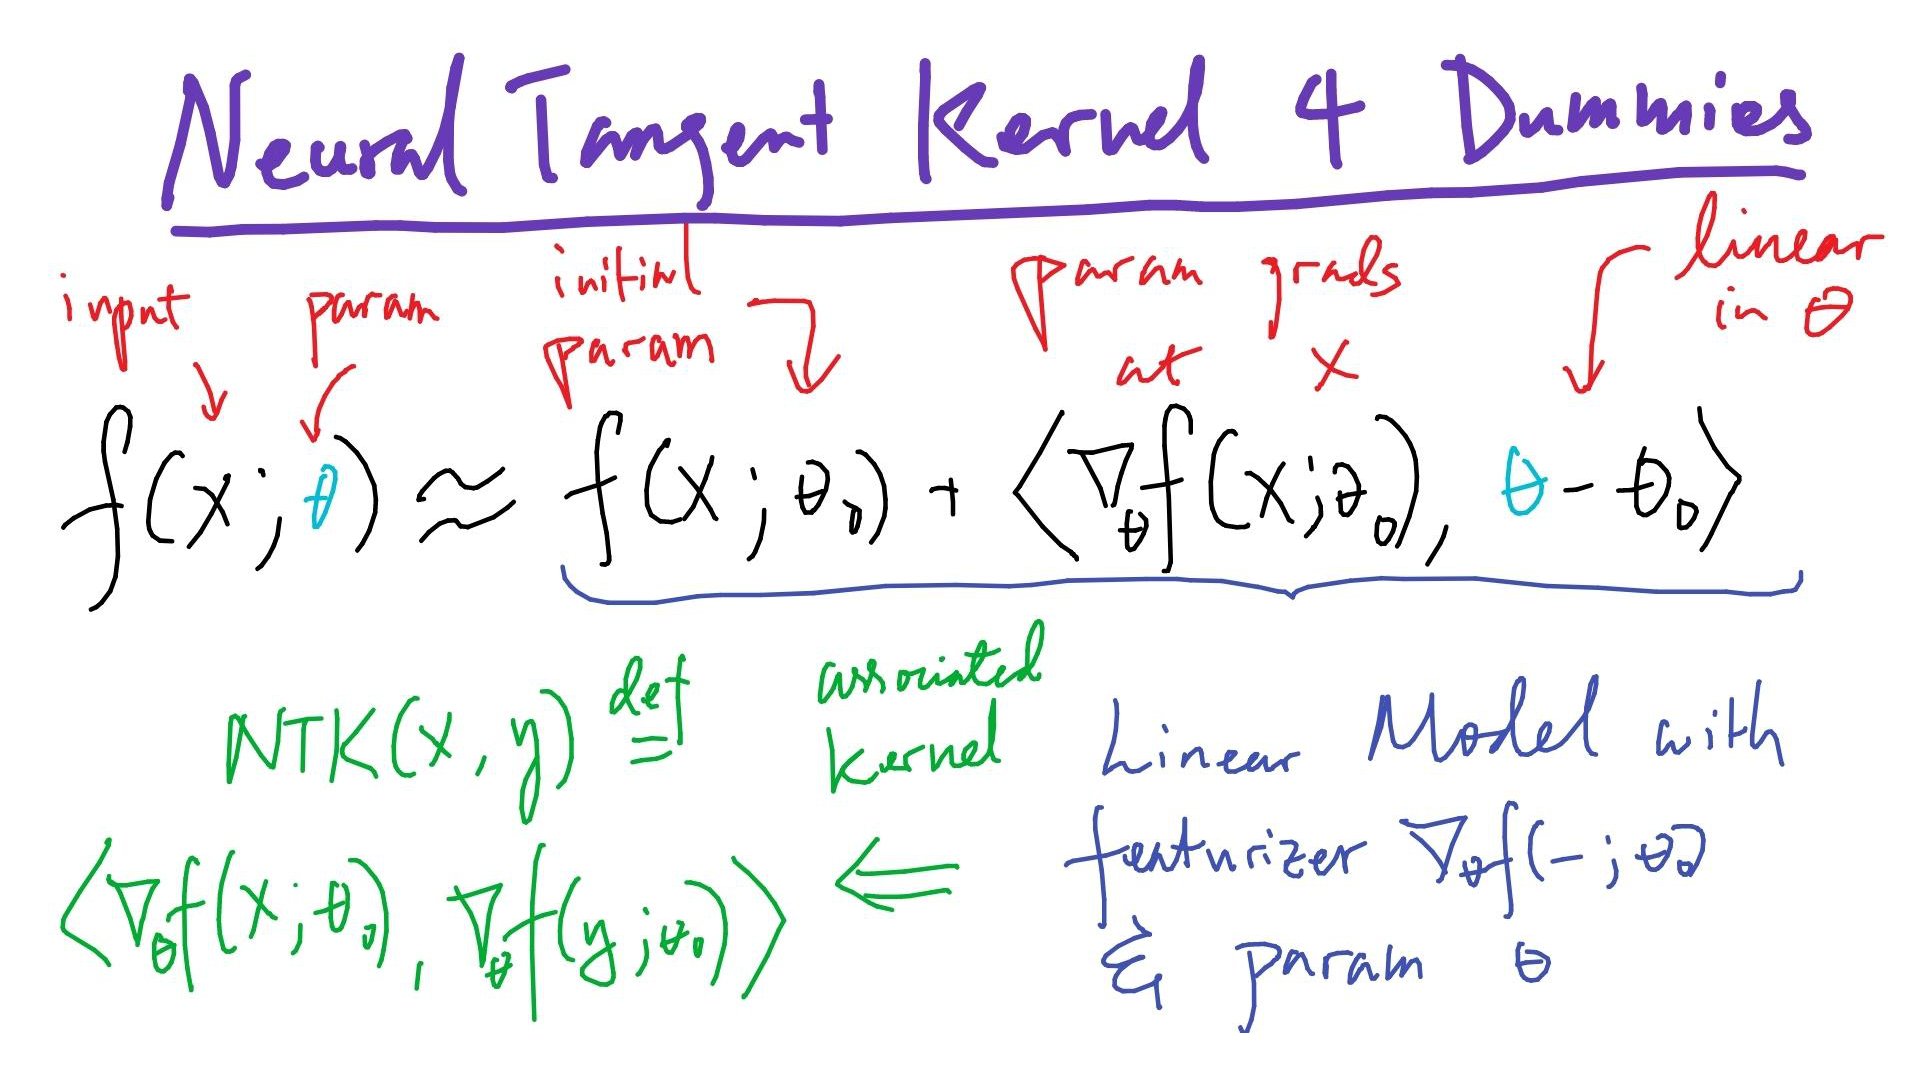 Neural Tangent Kernel 4 Dummies
input
param
initial
param
param grads
at x
linear
in θ
f(x; θ) ≈ f(x; θ₀) + ⟨∇_θ f(x; θ₀), θ - θ₀⟩
NTK(x, y) def=
⟨∇_θ f(x; θ₀), ∇_θ f(y; θ₀)⟩
associated
kernel
⇐
Linear Model with
featurizer ∇_θ f(–; θ₀)
& param θ